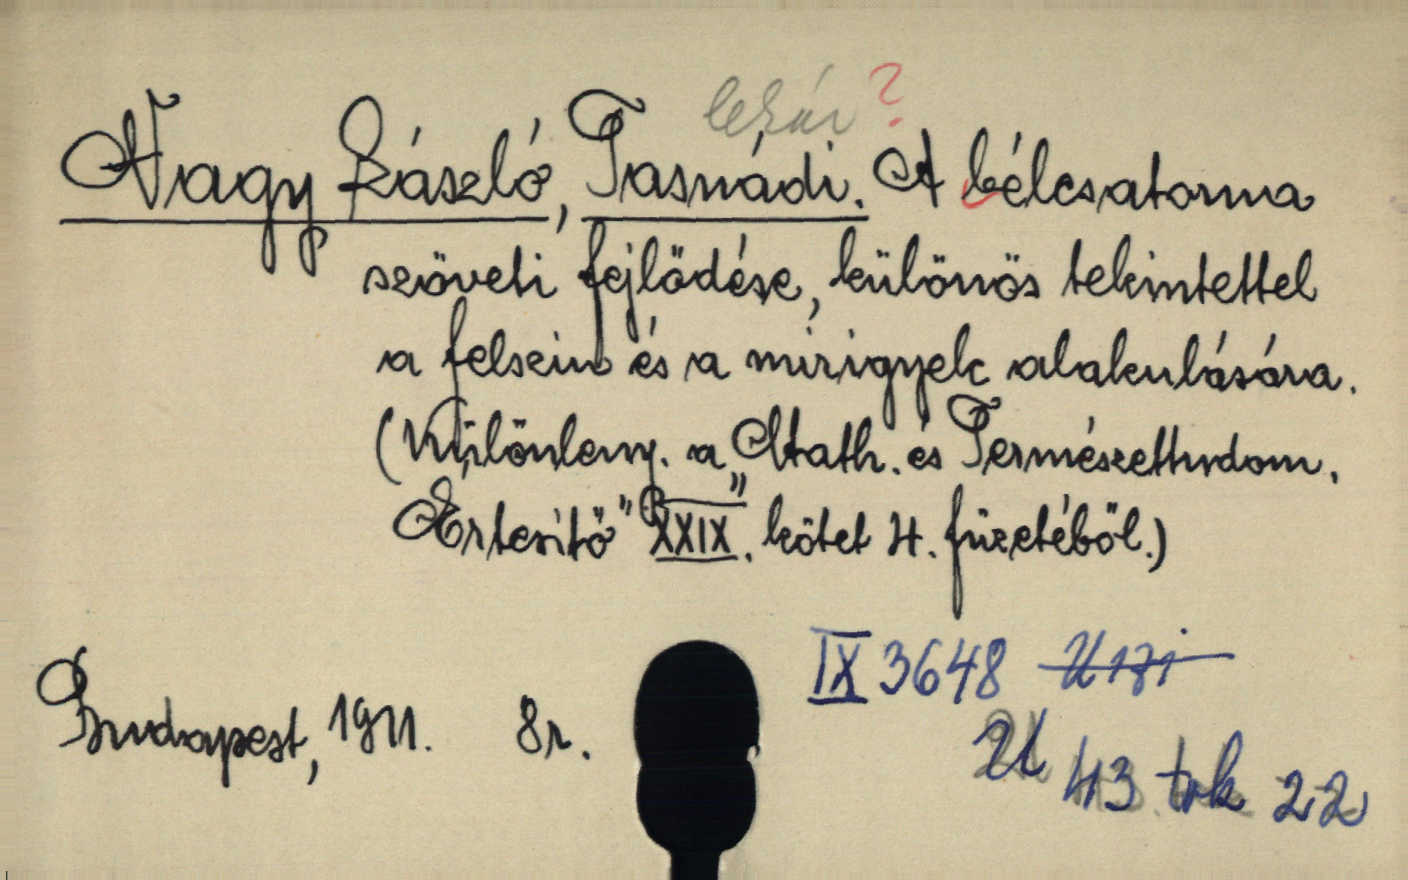 lehár ?
Nagy László, Tasnádi. A bélcsatorna
szöveti fejlődése, különös tekintettel
a felszin és a mirigyek alakulására.
(Különleny. a „Math. és Természettudom.
Értesítő" XXIX. kötet 4. füzetéből.)
IX 3648
Budapest, 1911. 8r.
U 43 trk 22